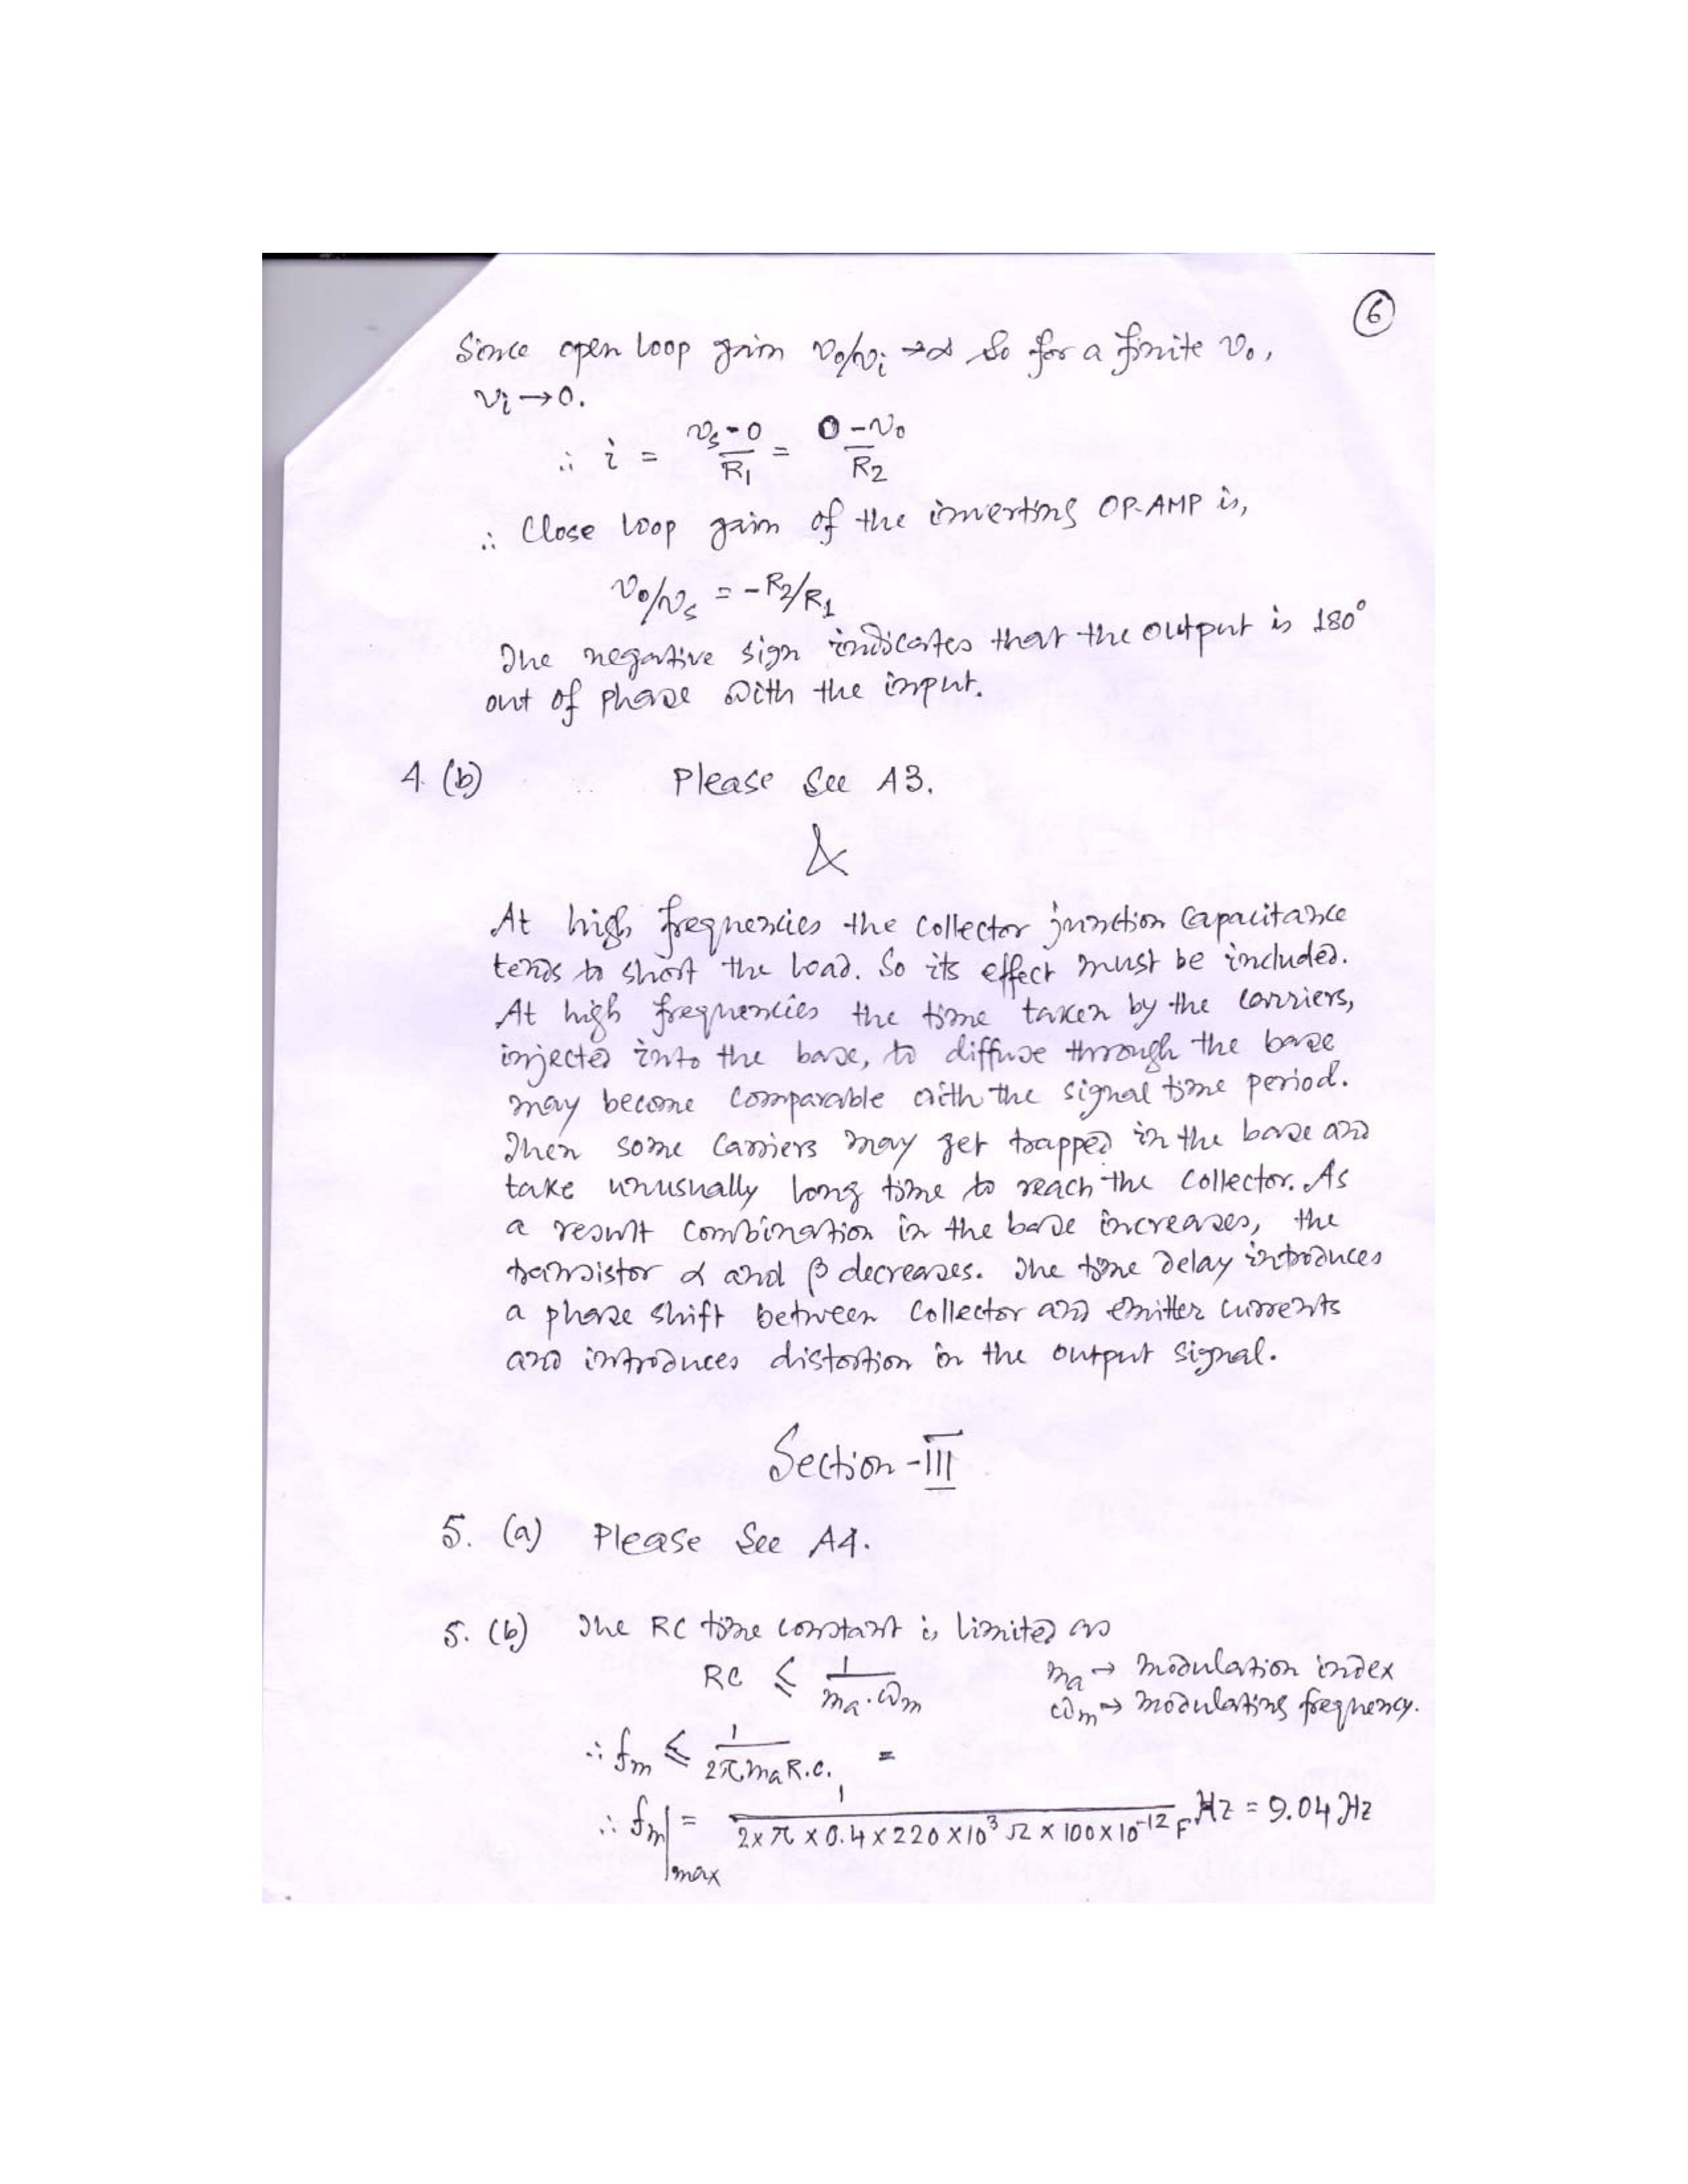 6
Since open loop gain v₀/vᵢ → ∝ So for a finite v₀,
vᵢ → 0.
∴ i = (v_s - 0)/R₁ = (0 - v₀)/R₂
∴ Close loop gain of the inverting OP-AMP is,
v₀/v_s = -R₂/R₁
The negative sign indicates that the output is 180°
out of phase with the input.
4. (b) Please See A3.
&
At high frequencies the collector junction capacitance
tends to short the load. So its effect must be included.
At high frequencies the time taken by the carriers,
injected into the base, to diffuse through the base
may become comparable with the signal time period.
Then some carriers may get trapped in the base and
take unusually long time to reach the collector. As
a result combination in the base increases, the
transistor α and β decreases. The time delay introduces
a phase shift between collector and emitter currents
and introduces distortion in the output signal.
Section-III
5. (a) Please See A4.
5. (b) The RC time constant is limited as
RC ≤ 1/(m_a . ω_m) m_a → modulation index
ω_m → modulating frequency.
∴ f_m ≤ 1/(2π m_a R.C.) =
∴ f_m|max = 1/(2 x π x 0.4 x 220 x 10³ Ω x 100 x 10⁻¹² F) Hz = 9.04 Hz